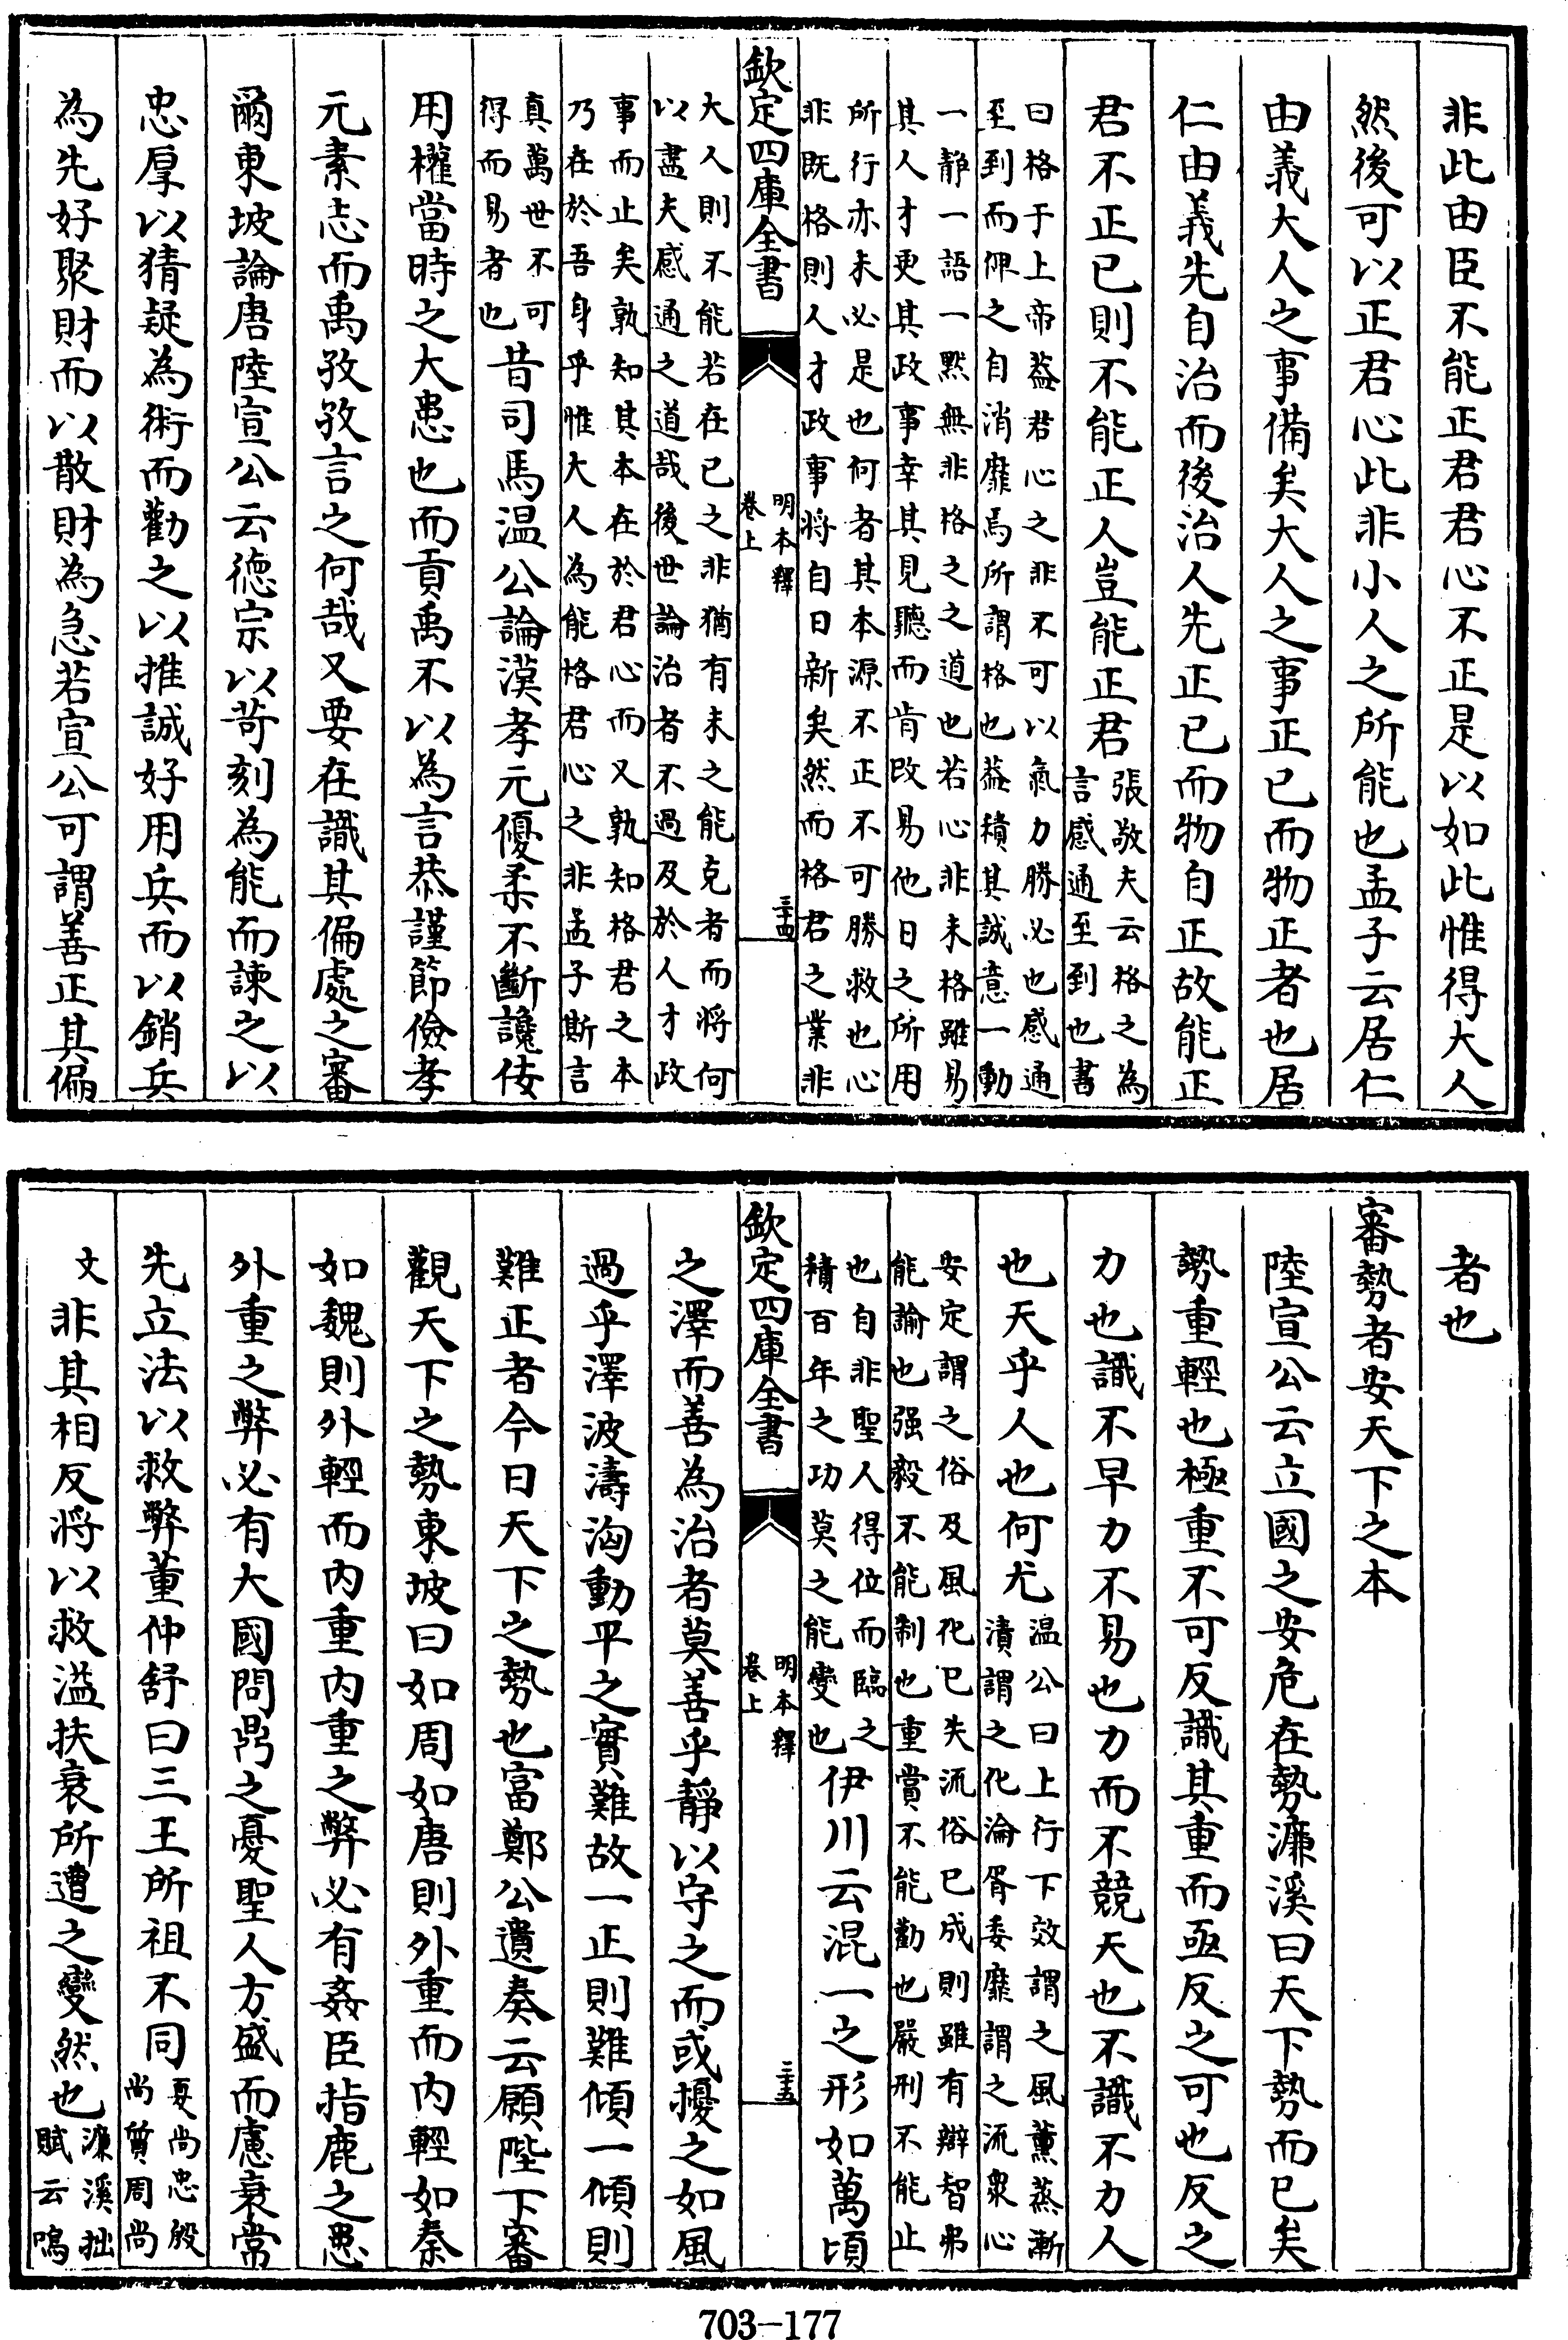 非此由臣不能正君君心不正是以如此惟得大人
然後可以正君心此非小人之所能也孟子云居仁
由義大人之事備矣大人之事正已而物正者也居
仁由義先自治而後治人先正已而物自正故能正
君不正已則不能正人豈能正君張敬夫云格之為
言感通至到也書
曰格于上帝葢君心之非不可以氣力勝必也感通
至到而俾之自消靡焉所謂格也葢積其誠意一動
一静一語一黙無非格之之道也若心非未格雖易
其人才更其政事幸其見聽而肯改易他日之所用
所行亦未必是也何者其本源不正不可勝救也心
非既格則人才政事将自日新矣然而格君之業非
欽定四庫全書
明本釋
卷上
三十四
大人則不能若在已之非猶有未之能克者而将何
以盡夫感通之道哉後世論治者不過及於人才政
事而止矣孰知其本在於君心而又孰知格君之本
乃在於吾身乎惟大人為能格君心之非孟子斯言
真萬世不可
得而易者也昔司馬温公論漢孝元優柔不斷讒佞
用權當時之大患也而貢禹不以為言恭謹節儉孝
元素志而禹孜孜言之何哉又要在識其偏處之審
爾東坡論唐陸宣公云德宗以苛刻為能而諫之以
忠厚以猜疑為術而勸之以推誠好用兵而以銷兵
為先好聚財而以散財為急若宣公可謂善正其偏
者也
審勢者安天下之本
陸宣公云立國之安危在勢濂溪曰天下勢而已矣
勢重輕也極重不可反識其重而亟反之可也反之
力也識不早力不易也力而不競天也不識不力人
也天乎人也何尤温公曰上行下效謂之風薰蒸漸
漬謂之化淪胥委靡謂之流衆心
安定謂之俗及風化已失流俗已成則雖有辯智弗
能諭也强毅不能制也重賞不能勸也嚴刑不能止
也自非聖人得位而臨之
積百年之功莫之能變也伊川云混一之形如萬頃
欽定四庫全書
明本釋
卷上
三十五
之澤而善為治者莫善乎靜以守之而或擾之如風
過乎澤波濤洶動平之實難故一正則難傾一傾則
難正者今日天下之勢也富鄭公遺奏云願陛下審
觀天下之勢東坡曰如周如唐則外重而内輕如秦
如魏則外輕而内重内重之弊必有姦臣指鹿之患
外重之弊必有大國問鼎之憂聖人方盛而慮衰常
先立法以救弊董仲舒曰三王所祖不同夏尚忠殷
尚質周尚
文非其相反将以救溢扶衰所遭之變然也濂溪拙
賦云鳴
703-177